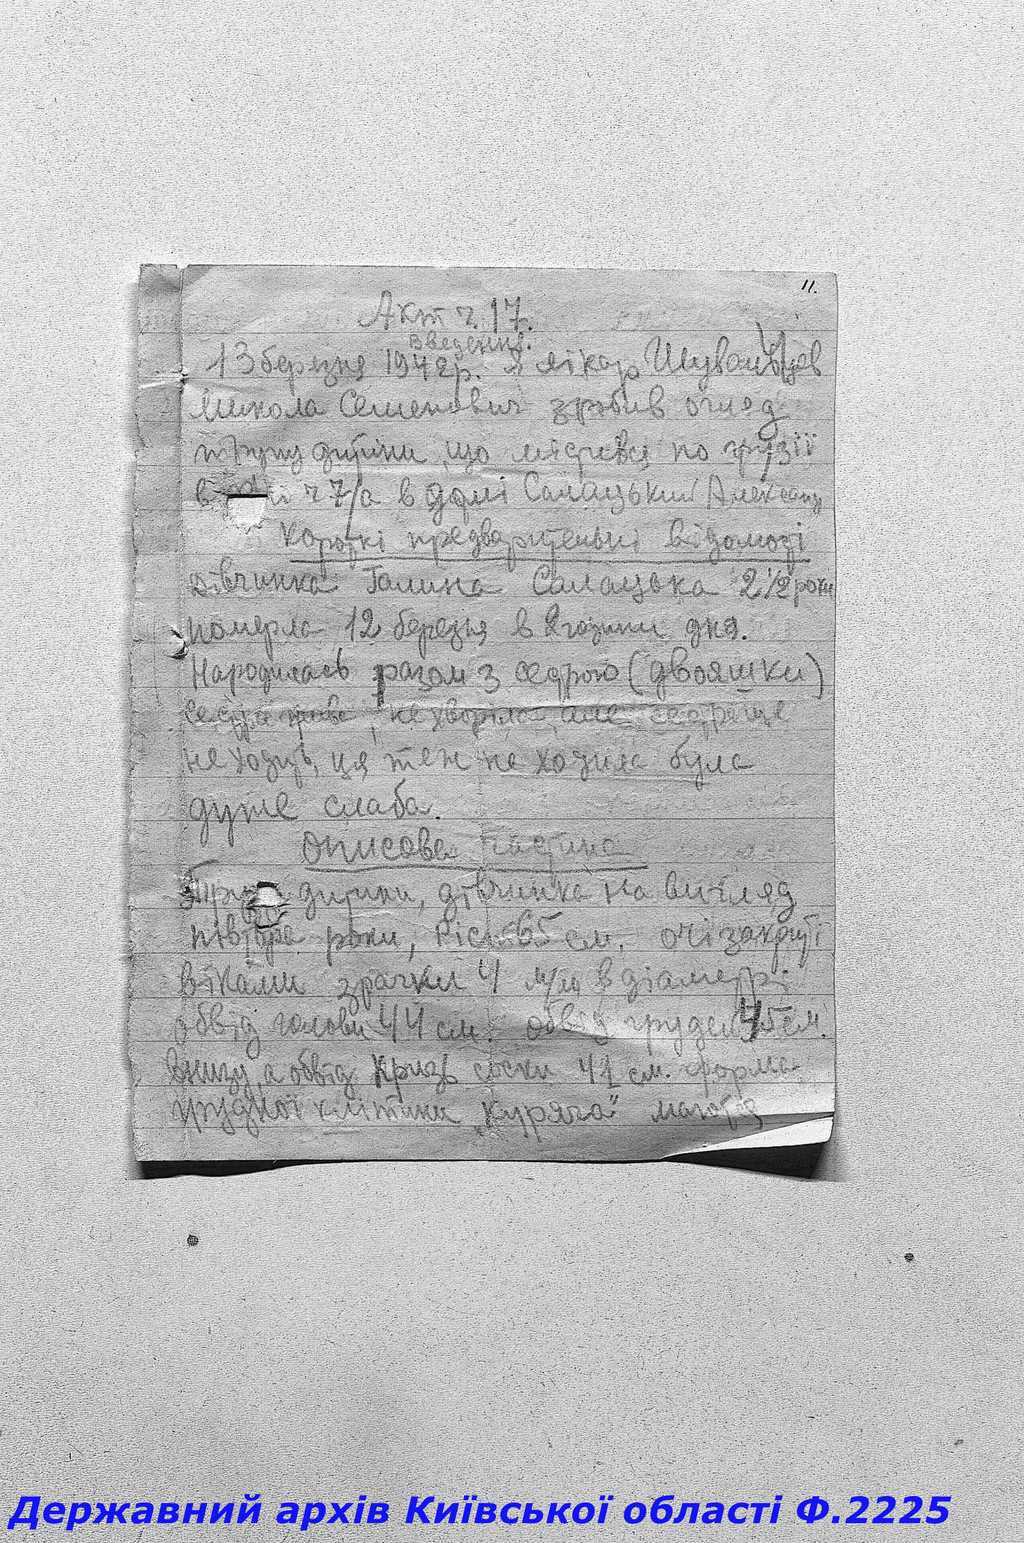 11.
Акт ч. 17.
Введення.
13 березня 1942р. Я лікар Шувальцов
Микола Семенович зробив огляд
трупу дитини, що містився по
в ч 7/а в домі Салацький Александ
Короткі предварительні відомості
дівчинка Галина Салацька 2 1/2 роки
померла 12 березня в 2 години дня.
Народилась разом з сестрою (двояшки)
сестра жива, не хворіла, але
не ходить, ця теж не ходила була
дуже слаба.
Описова частина
дитини, дівчинка на вигляд
півтора роки, ріст 65 см. очі закриті
віками зрачки 4 м/м в діаметрі
обвід голови 44 см. обвід грудей 45 см.
внизу, а обвід крізь соски 41 см. форма
грудної клітини „Куряча"
Державний архів Київської області Ф.2225